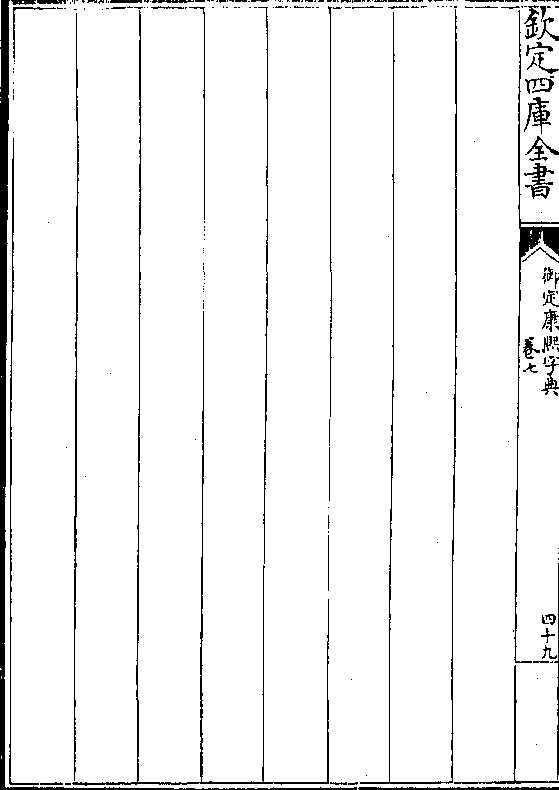 欽定四庫全書
御定康熙字典
卷七
四十九